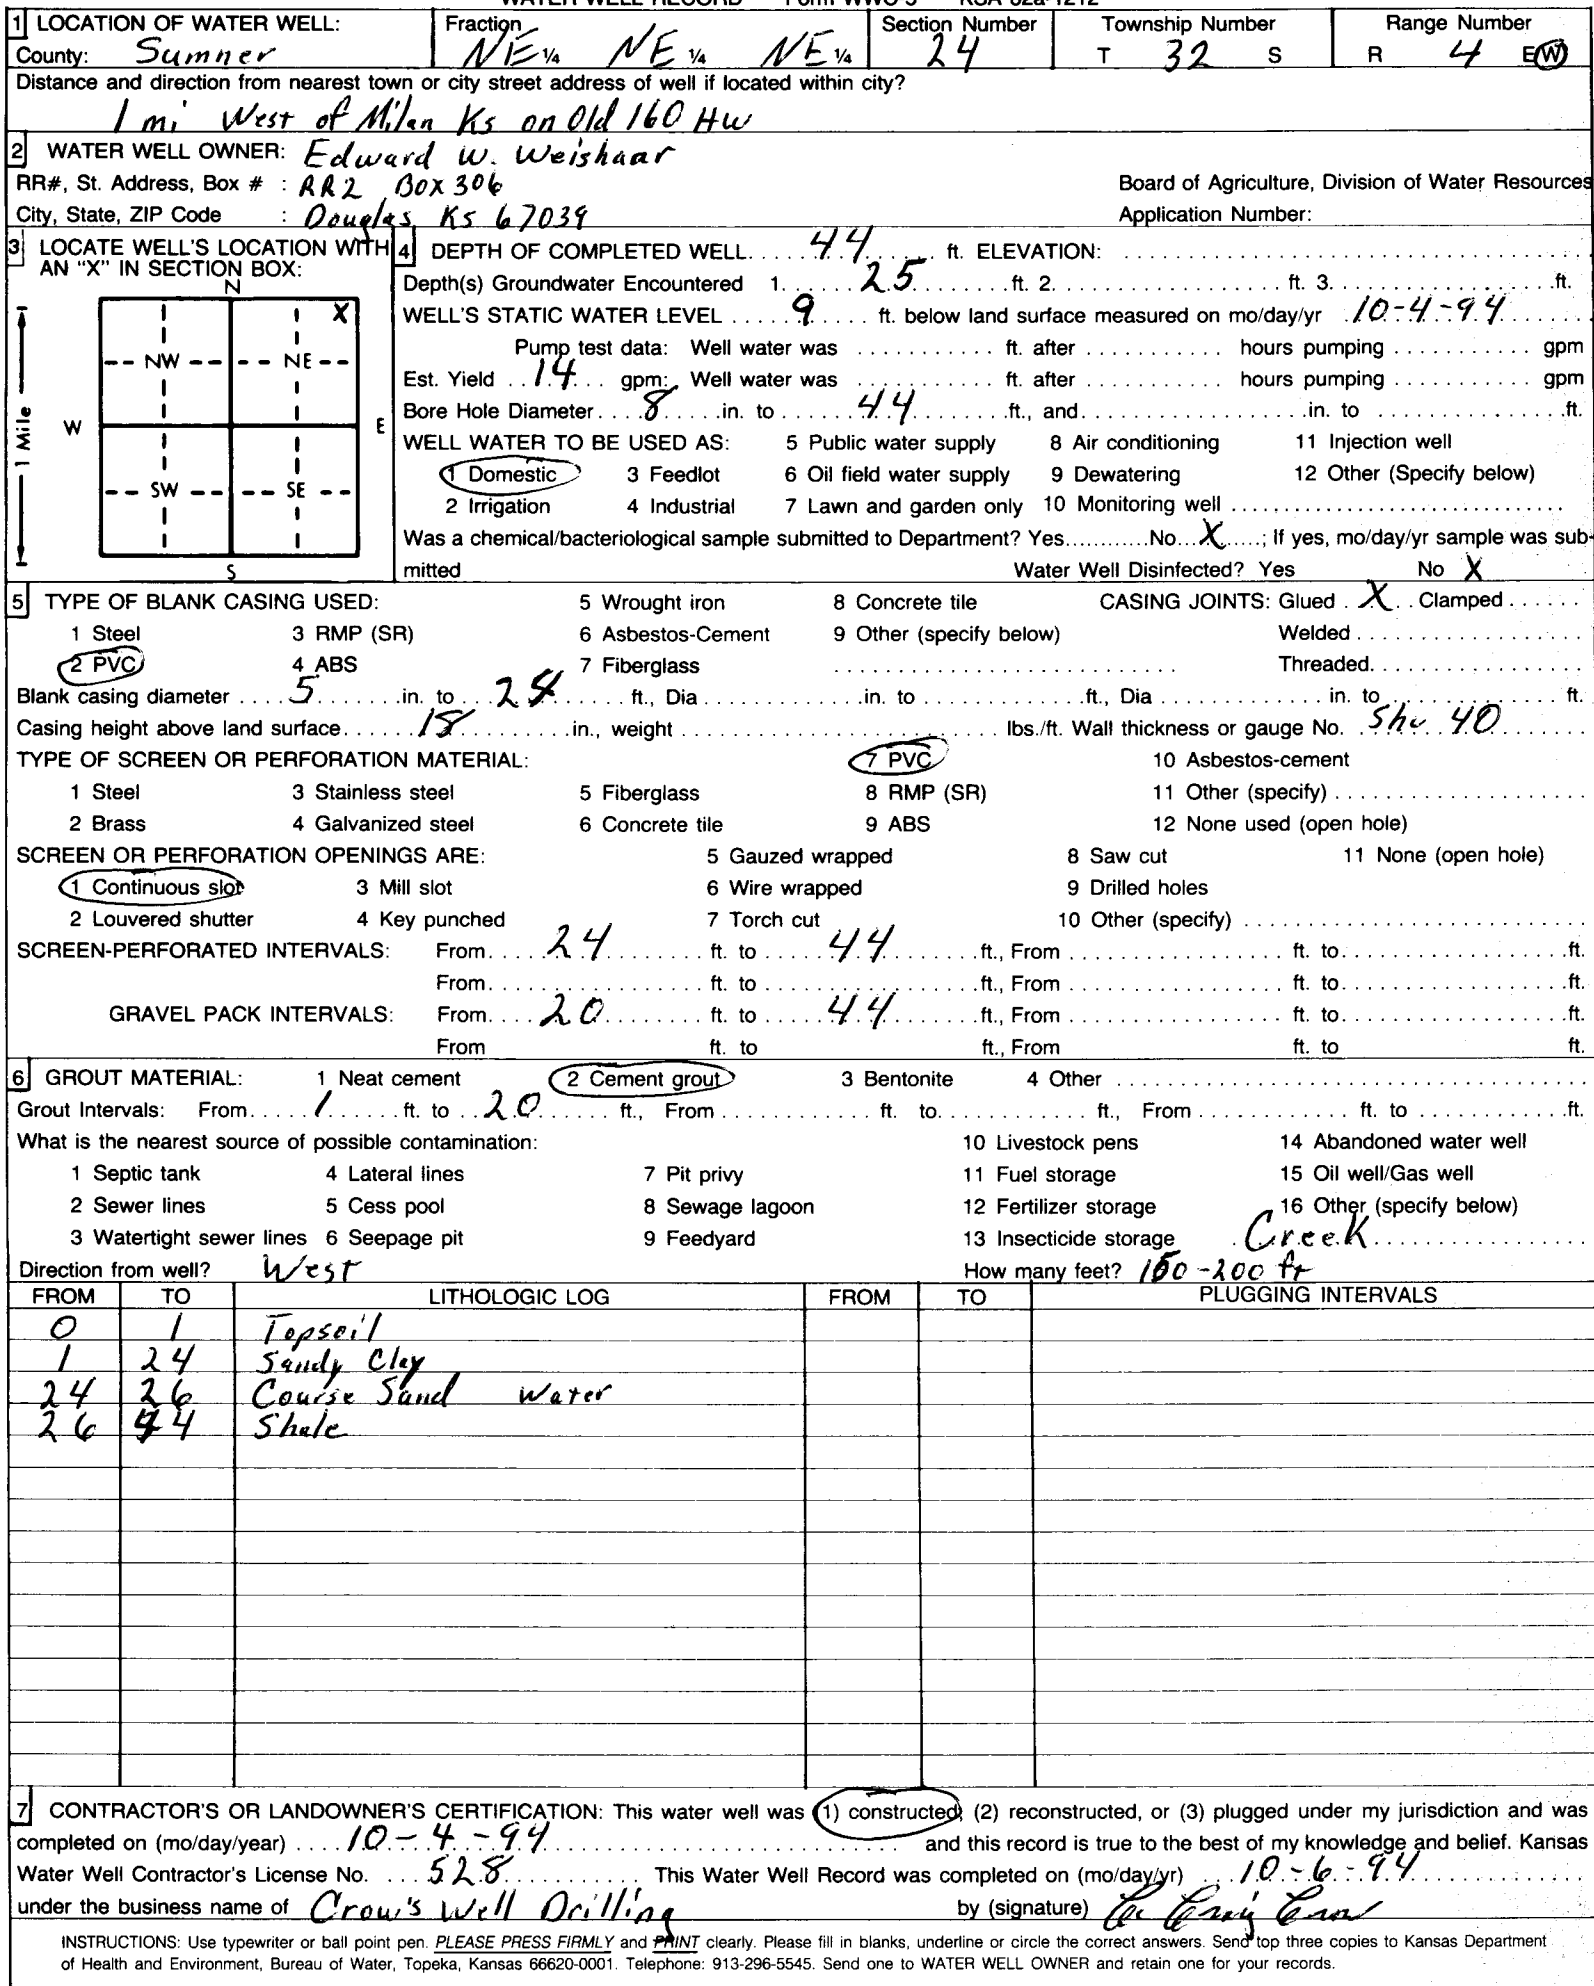 WATER WELL RECORD Form WWC-5 KSA 82a-1212
1 LOCATION OF WATER WELL: Fraction Section Number Township Number Range Number
County: Sumner NE ¼ NE ¼ NE ¼ 24 T 32 S R 4 E(W)
Distance and direction from nearest town or city street address of well if located within city?
1 mi West of Milan Ks on Old 160 HW
2 WATER WELL OWNER: Edward W. Weishaar
RR#, St. Address, Box # : RR2 BOX 306 Board of Agriculture, Division of Water Resources
City, State, ZIP Code : Douglas, Ks 67039 Application Number:
3 LOCATE WELL'S LOCATION WITH AN "X" IN SECTION BOX:
N
X
NW NE
W E
SW SE
S
1 Mile
4 DEPTH OF COMPLETED WELL 44 ft. ELEVATION:
Depth(s) Groundwater Encountered 1. 25 ft. 2. ft. 3. ft.
WELL'S STATIC WATER LEVEL 9 ft. below land surface measured on mo/day/yr 10-4-94
Pump test data: Well water was ft. after hours pumping gpm
Est. Yield 14 gpm: Well water was ft. after hours pumping gpm
Bore Hole Diameter 8 in. to 44 ft., and in. to ft.
WELL WATER TO BE USED AS: 5 Public water supply 8 Air conditioning 11 Injection well
1 Domestic 3 Feedlot 6 Oil field water supply 9 Dewatering 12 Other (Specify below)
2 Irrigation 4 Industrial 7 Lawn and garden only 10 Monitoring well
Was a chemical/bacteriological sample submitted to Department? Yes No X ; If yes, mo/day/yr sample was sub-
mitted Water Well Disinfected? Yes No X
5 TYPE OF BLANK CASING USED: 5 Wrought iron 8 Concrete tile CASING JOINTS: Glued X Clamped
1 Steel 3 RMP (SR) 6 Asbestos-Cement 9 Other (specify below) Welded
2 PVC 4 ABS 7 Fiberglass Threaded
Blank casing diameter 5 in. to 24 ft., Dia in. to ft., Dia in. to ft.
Casing height above land surface 18 in., weight lbs./ft. Wall thickness or gauge No. Shc 40
TYPE OF SCREEN OR PERFORATION MATERIAL: 7 PVC 10 Asbestos-cement
1 Steel 3 Stainless steel 5 Fiberglass 8 RMP (SR) 11 Other (specify)
2 Brass 4 Galvanized steel 6 Concrete tile 9 ABS 12 None used (open hole)
SCREEN OR PERFORATION OPENINGS ARE: 5 Gauzed wrapped 8 Saw cut 11 None (open hole)
1 Continuous slot 3 Mill slot 6 Wire wrapped 9 Drilled holes
2 Louvered shutter 4 Key punched 7 Torch cut 10 Other (specify)
SCREEN-PERFORATED INTERVALS: From 24 ft. to 44 ft., From ft. to ft.
From ft. to ft., From ft. to ft.
GRAVEL PACK INTERVALS: From 20 ft. to 44 ft., From ft. to ft.
From ft. to ft., From ft. to ft.
6 GROUT MATERIAL: 1 Neat cement 2 Cement grout 3 Bentonite 4 Other
Grout Intervals: From 1 ft. to 20 ft., From ft. to ft., From ft. to ft.
What is the nearest source of possible contamination: 10 Livestock pens 14 Abandoned water well
1 Septic tank 4 Lateral lines 7 Pit privy 11 Fuel storage 15 Oil well/Gas well
2 Sewer lines 5 Cess pool 8 Sewage lagoon 12 Fertilizer storage 16 Other (specify below)
3 Watertight sewer lines 6 Seepage pit 9 Feedyard 13 Insecticide storage Creek
Direction from well? West How many feet? 150-200 ft
FROM TO LITHOLOGIC LOG FROM TO PLUGGING INTERVALS
0 1 Topsoil
1 24 Sandy Clay
24 26 Course Sand Water
26 44 Shale
7 CONTRACTOR'S OR LANDOWNER'S CERTIFICATION: This water well was (1) constructed, (2) reconstructed, or (3) plugged under my jurisdiction and was
completed on (mo/day/year) 10-4-94 and this record is true to the best of my knowledge and belief. Kansas
Water Well Contractor's License No. 528 This Water Well Record was completed on (mo/day/yr) 10-6-94
under the business name of Crow's Well Drilling by (signature) Craig Crow
INSTRUCTIONS: Use typewriter or ball point pen. PLEASE PRESS FIRMLY and PRINT clearly. Please fill in blanks, underline or circle the correct answers. Send top three copies to Kansas Department
of Health and Environment, Bureau of Water, Topeka, Kansas 66620-0001. Telephone: 913-296-5545. Send one to WATER WELL OWNER and retain one for your records.